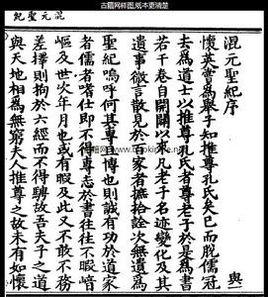 古籍网样图,纸本更清楚
混元聖紀
與
混元聖紀序
懷英嘗為舉子知推尊孔氏矣已而脫儒冠
去為道士以推尊孔氏者尊老子於是為書
若干卷自開闢以來凡老子名迹變化及其
遺事微言散見於百家者摭拾詮次無遺為
聖紀嗚呼何其專且博也則誠有功於道家
者儒者嗜仕即不得專志於書往往不暇
嶇及世次年月也或有暇及此又不敢不務
差擇則拘於六經而不得騁故吾夫子之道
與天地相為無窮夫人推尊之故未有如懷